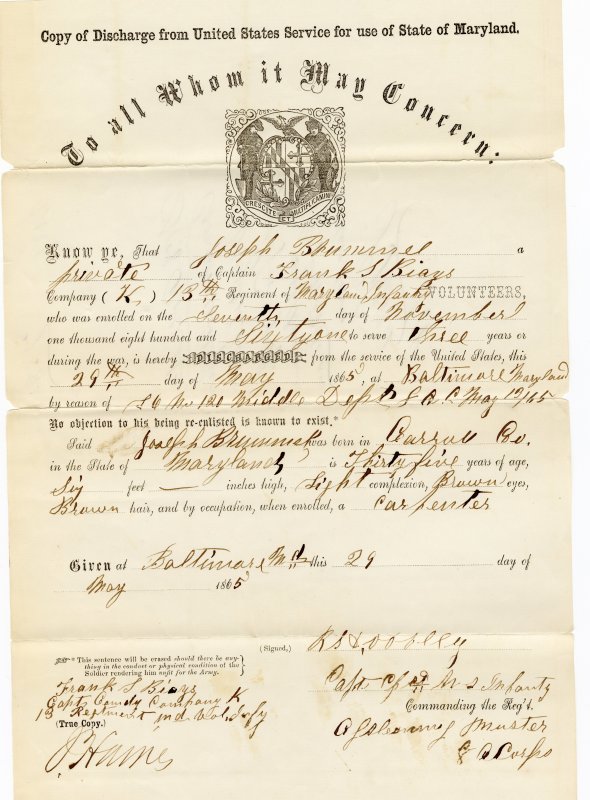 Copy of Discharge from United States Service for use of State of Maryland.
To all Whom it May Concern:
CRESCITE ET MULTIPLICAMINI
Know ye, That Joseph Brummel a
private of Captain Frank S Biays
Company (K,) 13th Regiment of Maryland Infantry VOLUNTEERS,
who was enrolled on the Seventh day of November
one thousand eight hundred and Sixty one to serve three years or
during the war, is hereby DISCHARGED from the service of the United States, this
29th day of May 1865, at Baltimore Maryland
by reason of No 120 Middle Dept 8 A C May 65
No objection to his being re-enlisted is known to exist.*
Said Joseph Brummel was born in Carroll Co.
in the State of Maryland, is Thirty five years of age,
Six feet — inches high, Light complexion, Brown eyes,
Brown hair, and by occupation, when enrolled, a Carpenter
Given at Baltimore Md this 29 day of
May 1865
(Signed,)
* This sentence will be erased should there be any-
thing in the conduct or physical condition of the
Soldier rendering him unfit for the Army.
Frank S Biays
Capt Comdg Company K
13 Regiment Md Vol. Infy
(True Copy.)
Capt 2d U S Infanty
Commanding the Reg't.
Muster
8 A Corps